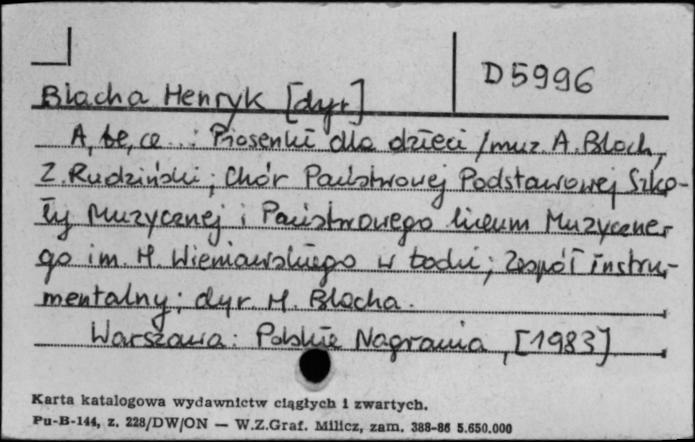 D 5996
Blacha Henryk [dyr]
A, be, ce...: Piosenki dla dzieci / muz. A. Bloch,
Z. Rudziński; Chór Państwowej Podstawowej Szko-
ły Muzycznej i Państwowego Liceum Muzyczne-
go im. H. Wieniawskiego w Łodzi; Zespół instru-
mentalny; dyr. H. Blacha.
Warszawa: Polskie Nagrania, [1983]
Karta katalogowa wydawnictw ciągłych i zwartych.
Pu-B-144, z. 228/DW/ON — W.Z.Graf. Milicz, zam. 388-86 5.650.000